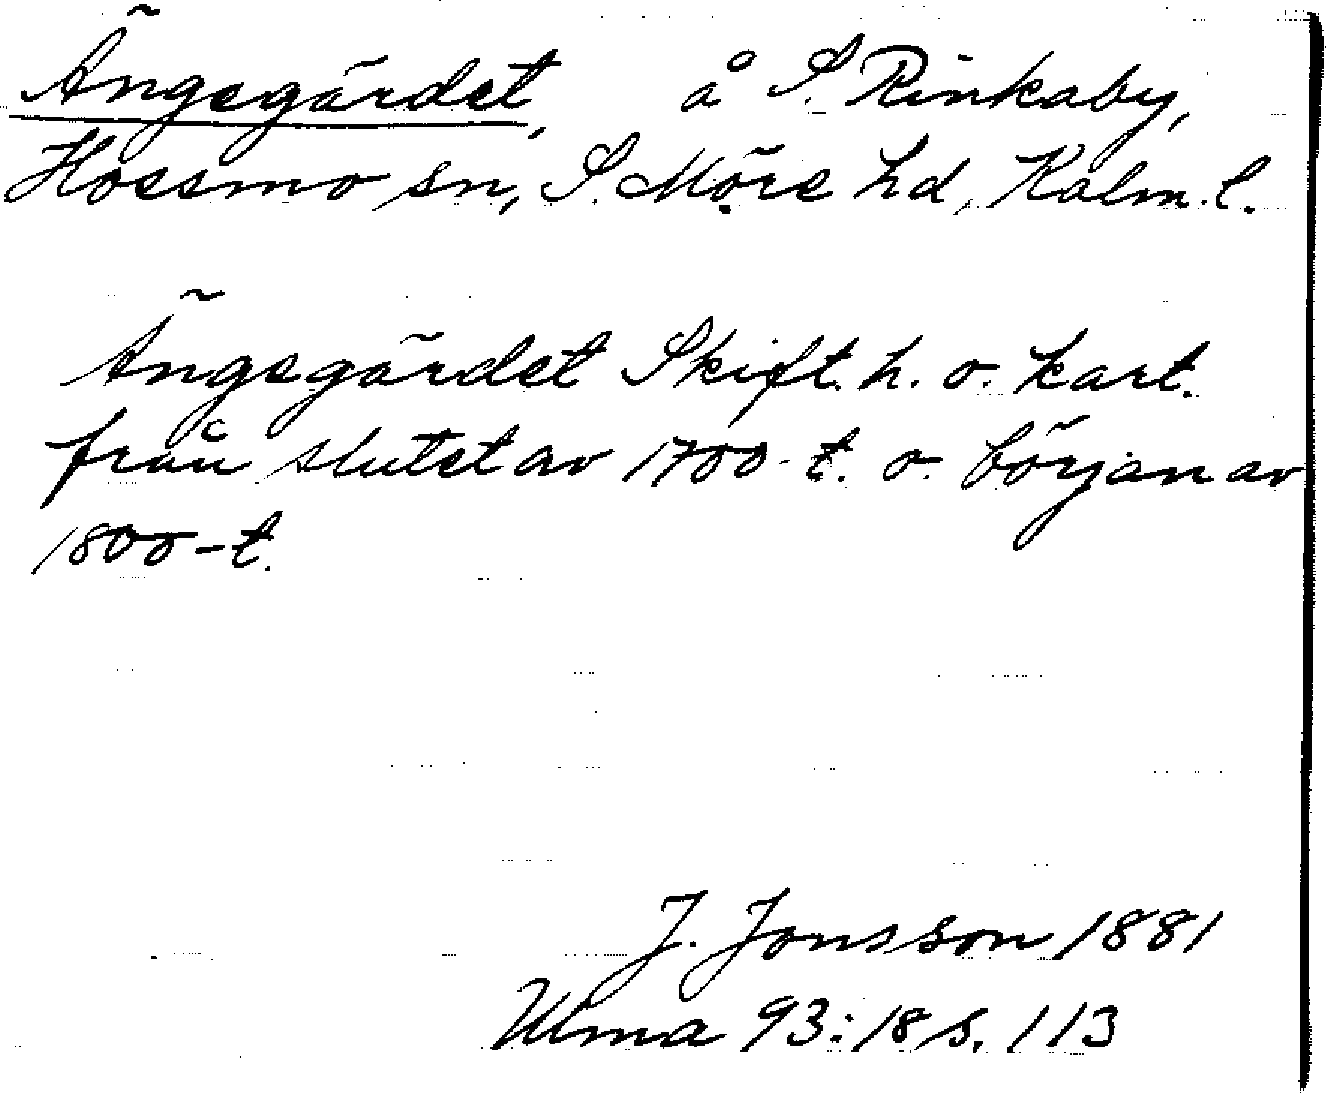 Ängegärdet, å S. Rinkaby,
Hossmo sn, S. Möre hd, Kalm. l.
Ängegärdet Skift. h. o. kart.
från slutet av 1700-t. o. början av
1800-t.
J. Jonsson 1881
Ulma 93:18 s. 113